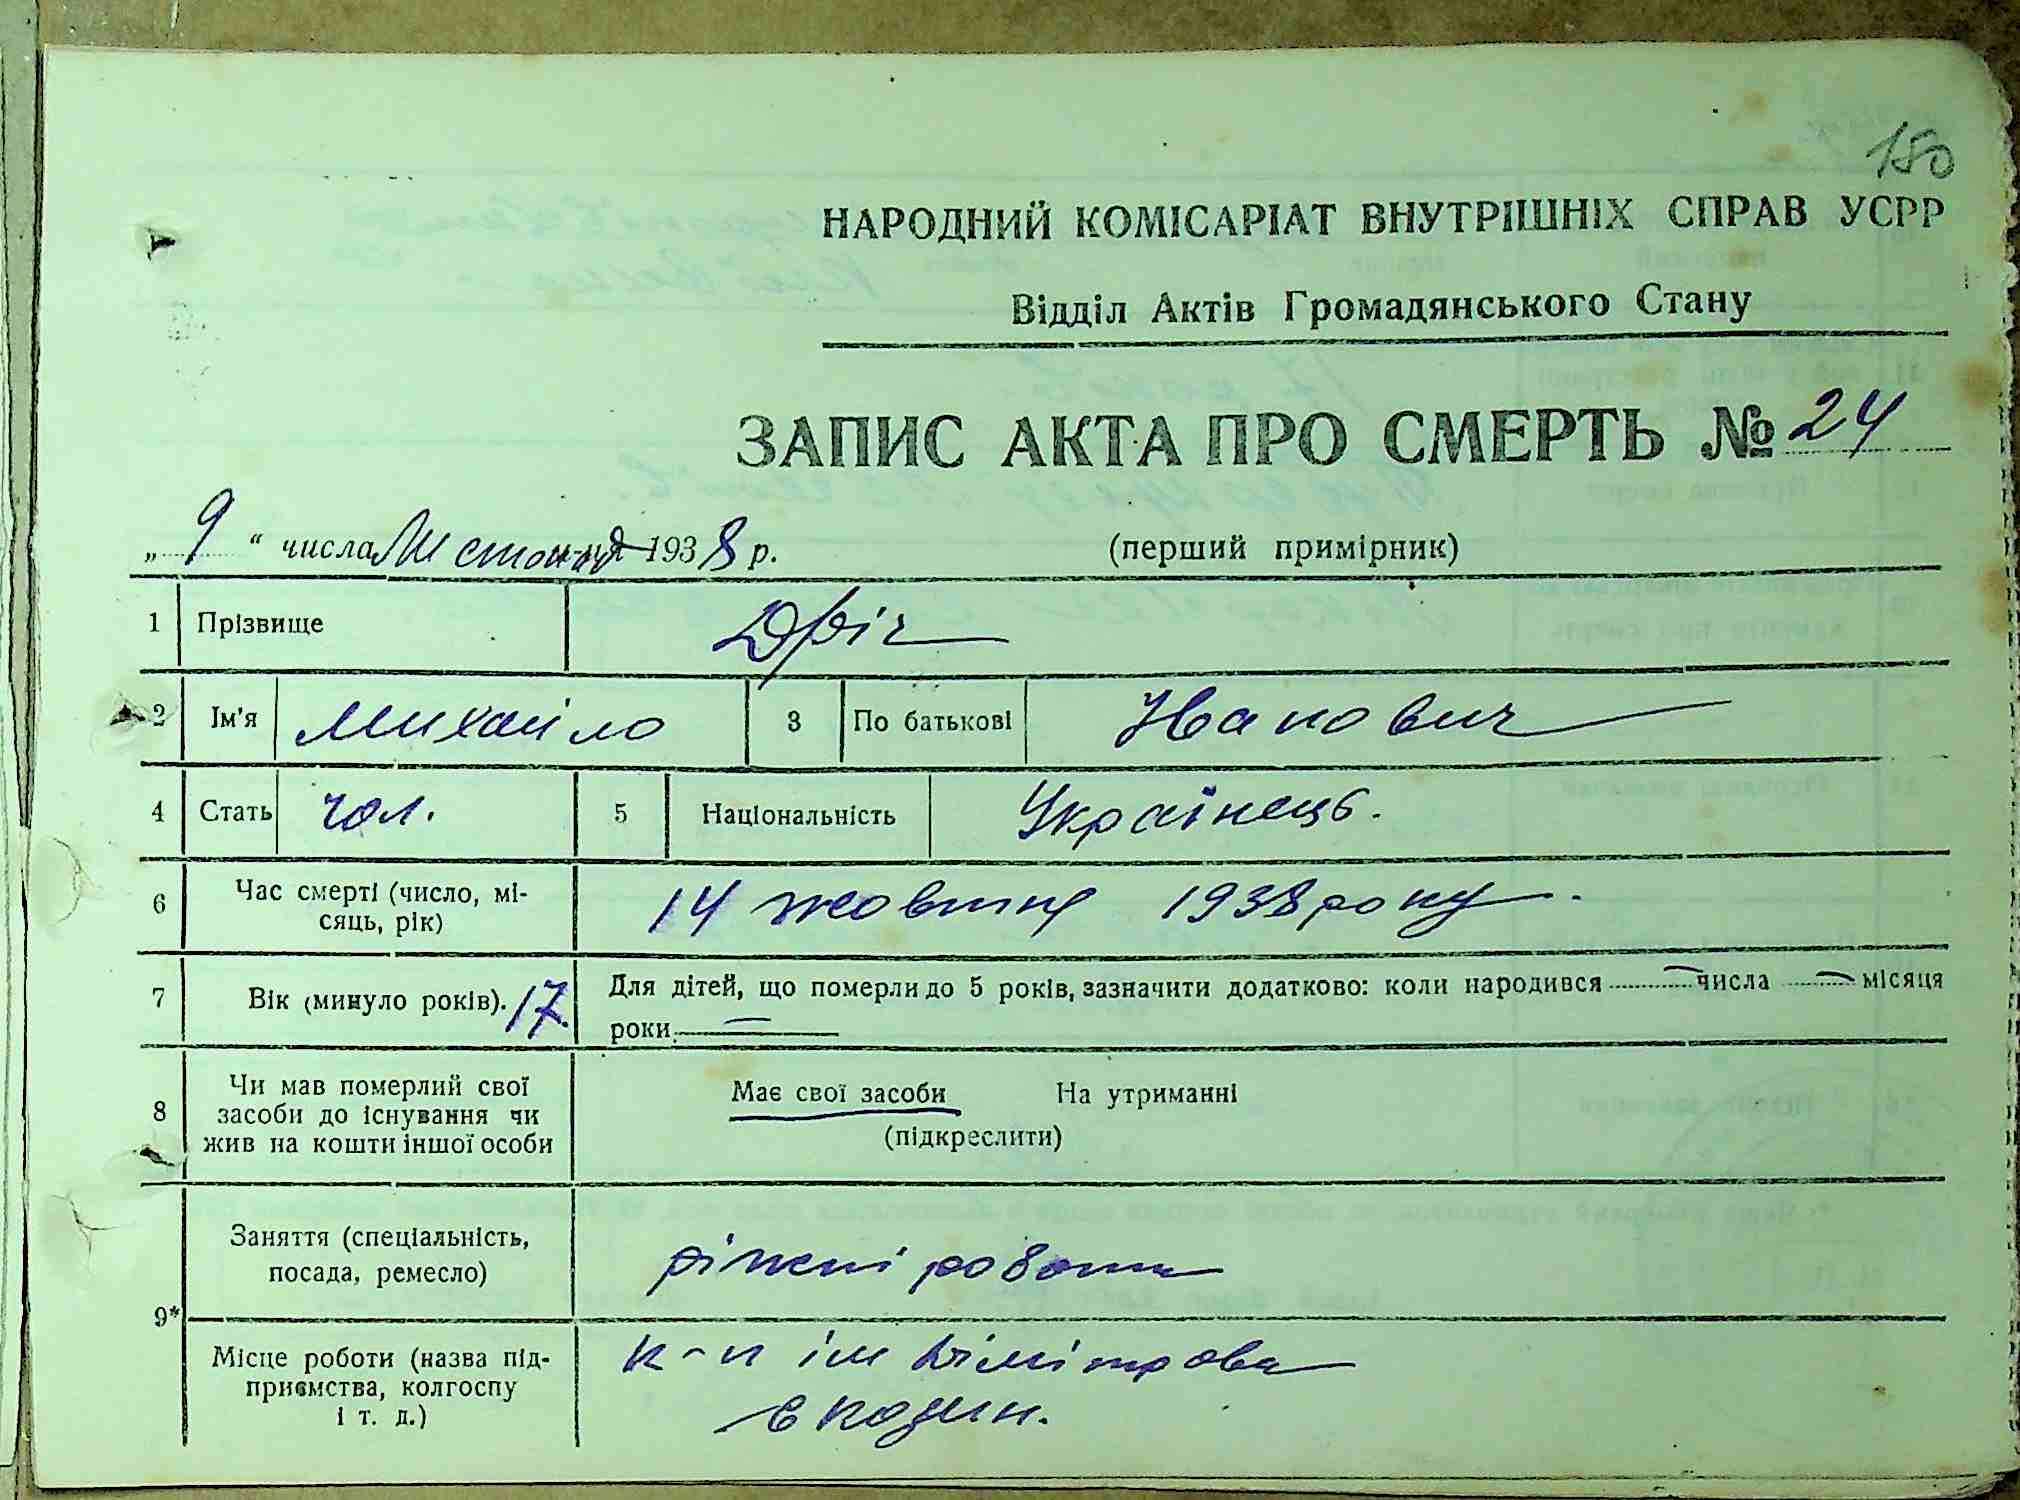 150
НАРОДНИЙ КОМІСАРІАТ ВНУТРІШНІХ СПРАВ УСРР
Відділ Актів Громадянського Стану
ЗАПИС АКТА ПРО СМЕРТЬ № 24
„ 9 “ числа Листопада 1938 р. (перший примірник)
1 Прізвище
2 Ім'я Михайло 3 По батькові Іванович
4 Стать чол. 5 Національність Українець.
6 Час смерті (число, мі-
сяць, рік) 14 жовтня 1938 року
7 Вік (минуло років). 17. Для дітей, що померли до 5 років, зазначити додатково: коли народився — числа — місяця
роки —
8 Чи мав померлий свої
засоби до існування чи
жив на кошти іншої особи
Має свої засоби На утриманні
(підкреслити)
9*
Заняття (спеціальність,
посада, ремесло) ріжні роботи
Місце роботи (назва під-
приємства, колгоспу
і т. д.)
к-п ім Дімітрова